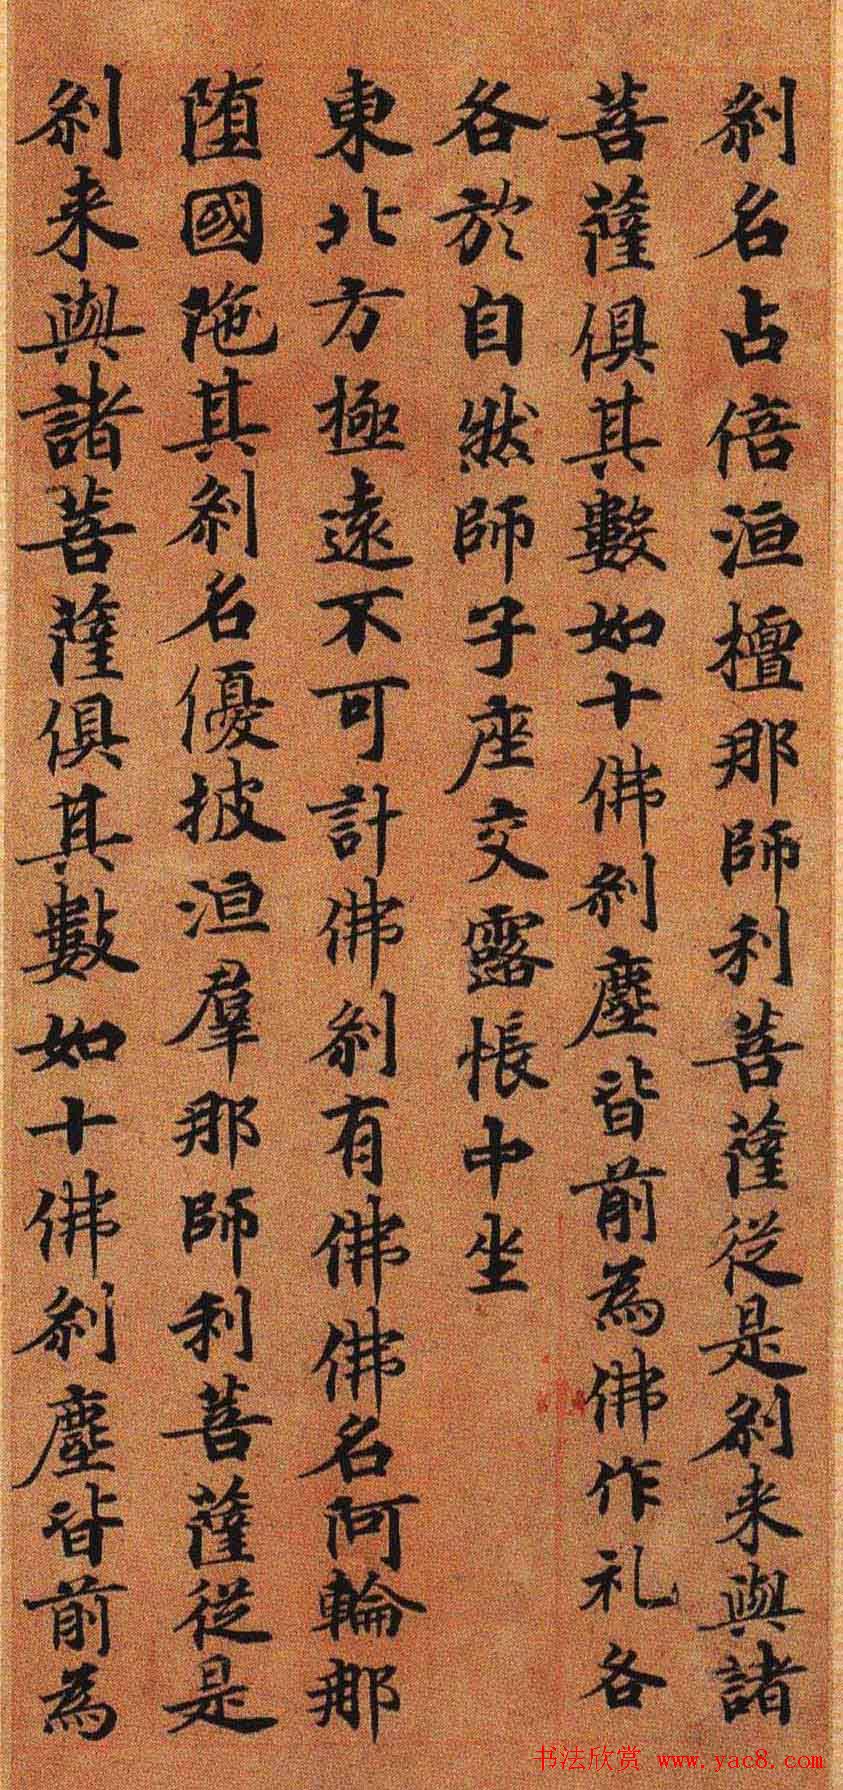 刹名占倍洹檀那師利菩薩從是刹来與諸
菩薩俱其數如十佛刹塵皆前為佛作礼各
各於自然師子座交露帳中坐
東北方極遠不可計佛刹有佛佛名阿輪那
堕國陁其刹名優披洹羣那師利菩薩從是
刹来與諸菩薩俱其數如十佛刹塵皆前為
书法欣赏 www.yac8.com